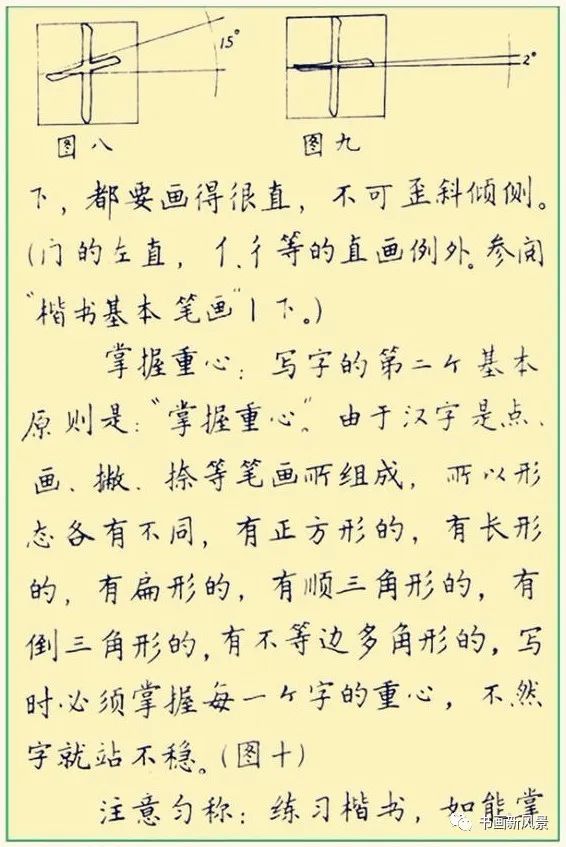 15°
2°
图八
图九
下，都要画得很直，不可歪斜倾侧。
(门的左直，亻、彳等的直画例外。参阅
“楷书基本笔画”丨下。)
掌握重心：写字的第二个基本
原则是：“掌握重心”。由于汉字是点、
画、撇、捺等笔画所组成，所以形
态各有不同，有正方形的，有长形
的，有扁形的，有顺三角形的，有
倒三角形的，有不等边多角形的，写
时必须掌握每一个字的重心，不然
字就站不稳。(图十)
注意匀称：练习楷书，如能掌
书画新风景